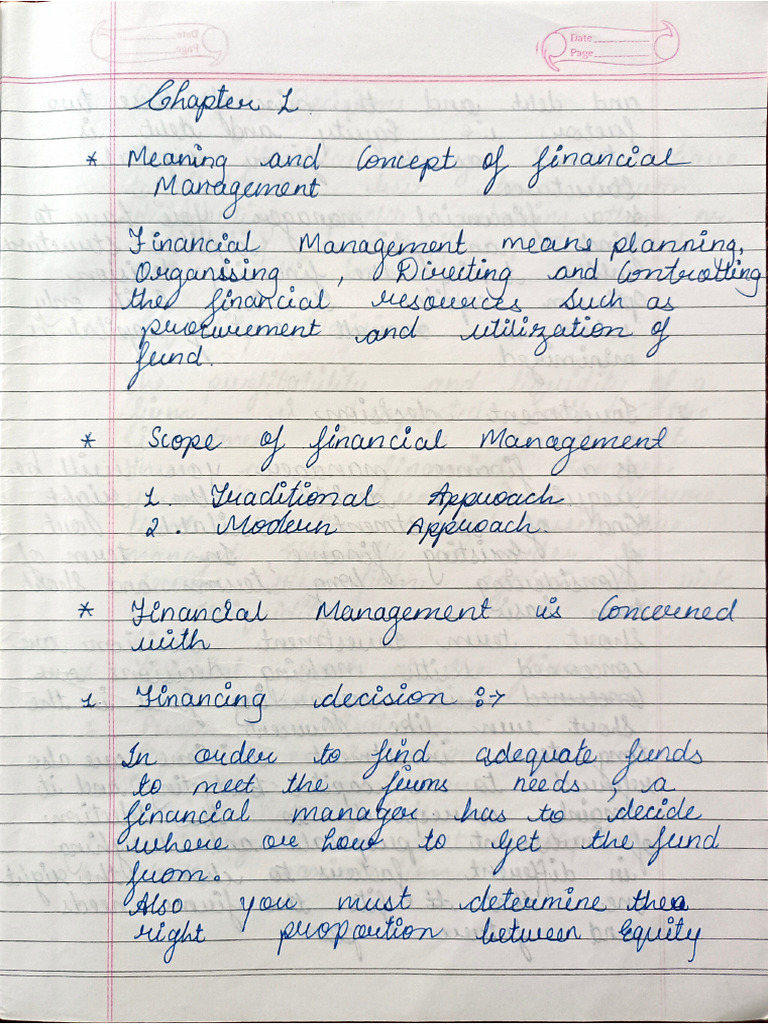 Date
Page
Chapter 1
* Meaning and Concept of financial
Management
Financial Management means planning,
Organising , Directing and Controlling
the financial resources such as
procurement and utilization of
fund.
* Scope of financial Management
1. Traditional Approach
2. Modern Approach.
* Financial Management is Concerned
with
1. Financing decision :→
In order to find adequate funds
to meet the firms needs , a
financial manager has to decide
where or how to get the fund
from.
Also you must determine the
right proportion between Equity